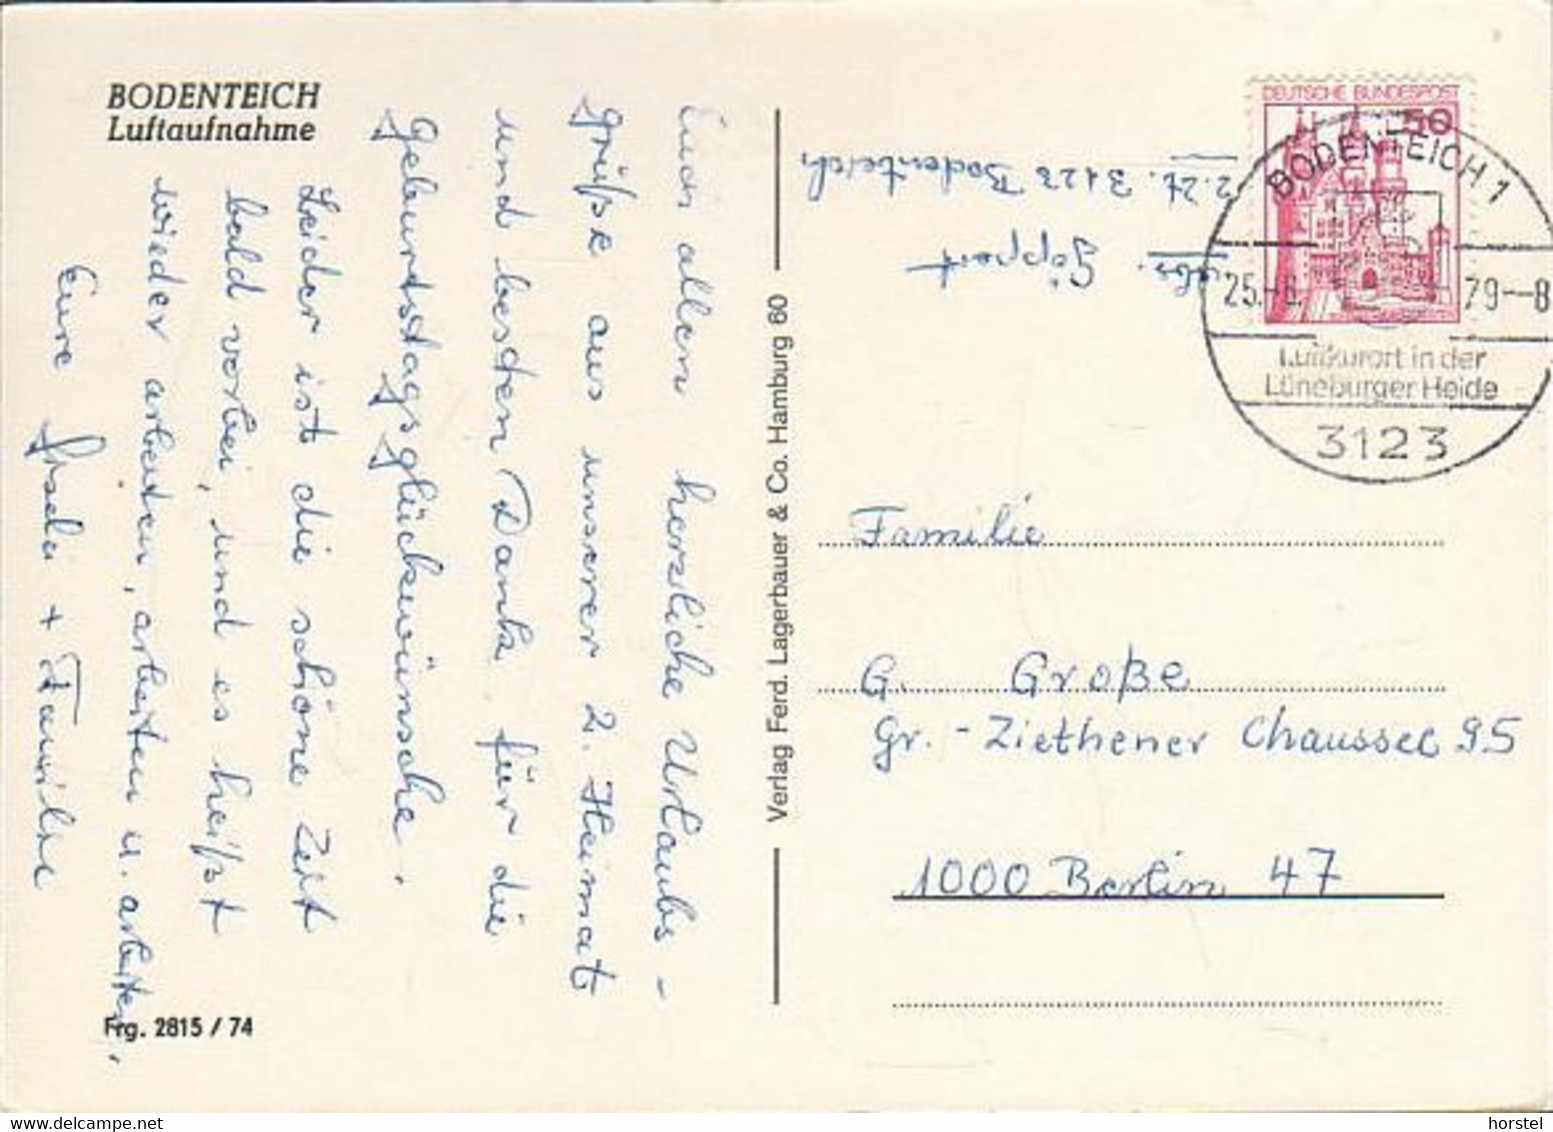 BODENTEICH
Luftaufnahme
Euch allen herzliche Urlaubs-
grüße aus unserer 2. Heimat
und besten Dank für die
Geburtstagsglückwünsche.
Leider ist die schöne Zeit
bald vorbei, und es heißt
wieder arbeiten, arbeiten u. arbeiten.
Eure + Familie
Frg. 2815 / 74
Verlag Ferd. Lagerbauer & Co. Hamburg 60
Göppert
z.Zt. 3123 Bodenteich
DEUTSCHE BUNDESPOST
50
BODENTEICH 1
25.-8. 79--8
Luftkurort in der
Lüneburger Heide
3123
Familie
G. Große
Gr.-Ziethener Chaussee 95
1000 Berlin 47
www.delcampe.net
horstel